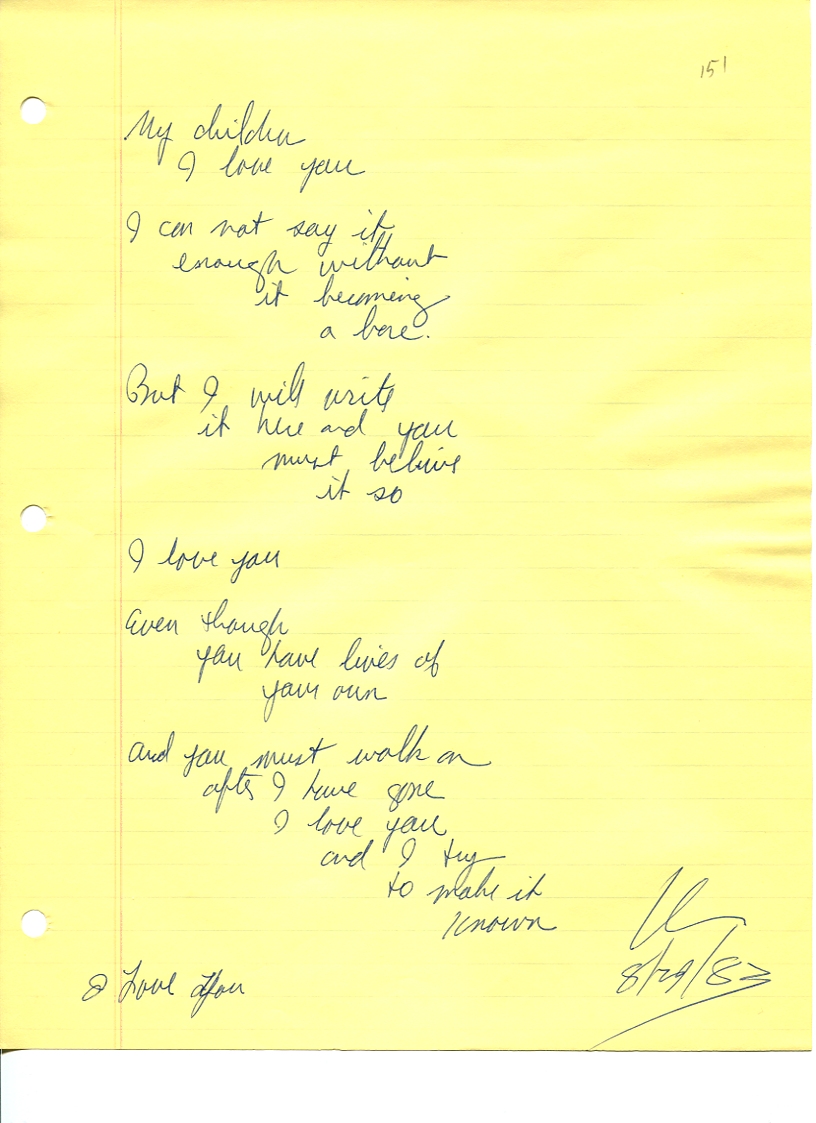 151
My children
I love you
I can not say it
enough without
it becoming
a bore.
But I will write
it here and you
must believe
it so
I love you
Even though
you have lives of
your own
And you must walk on
after I have gone
I love you
and I try
to make it
known
8/29/83
I Love You